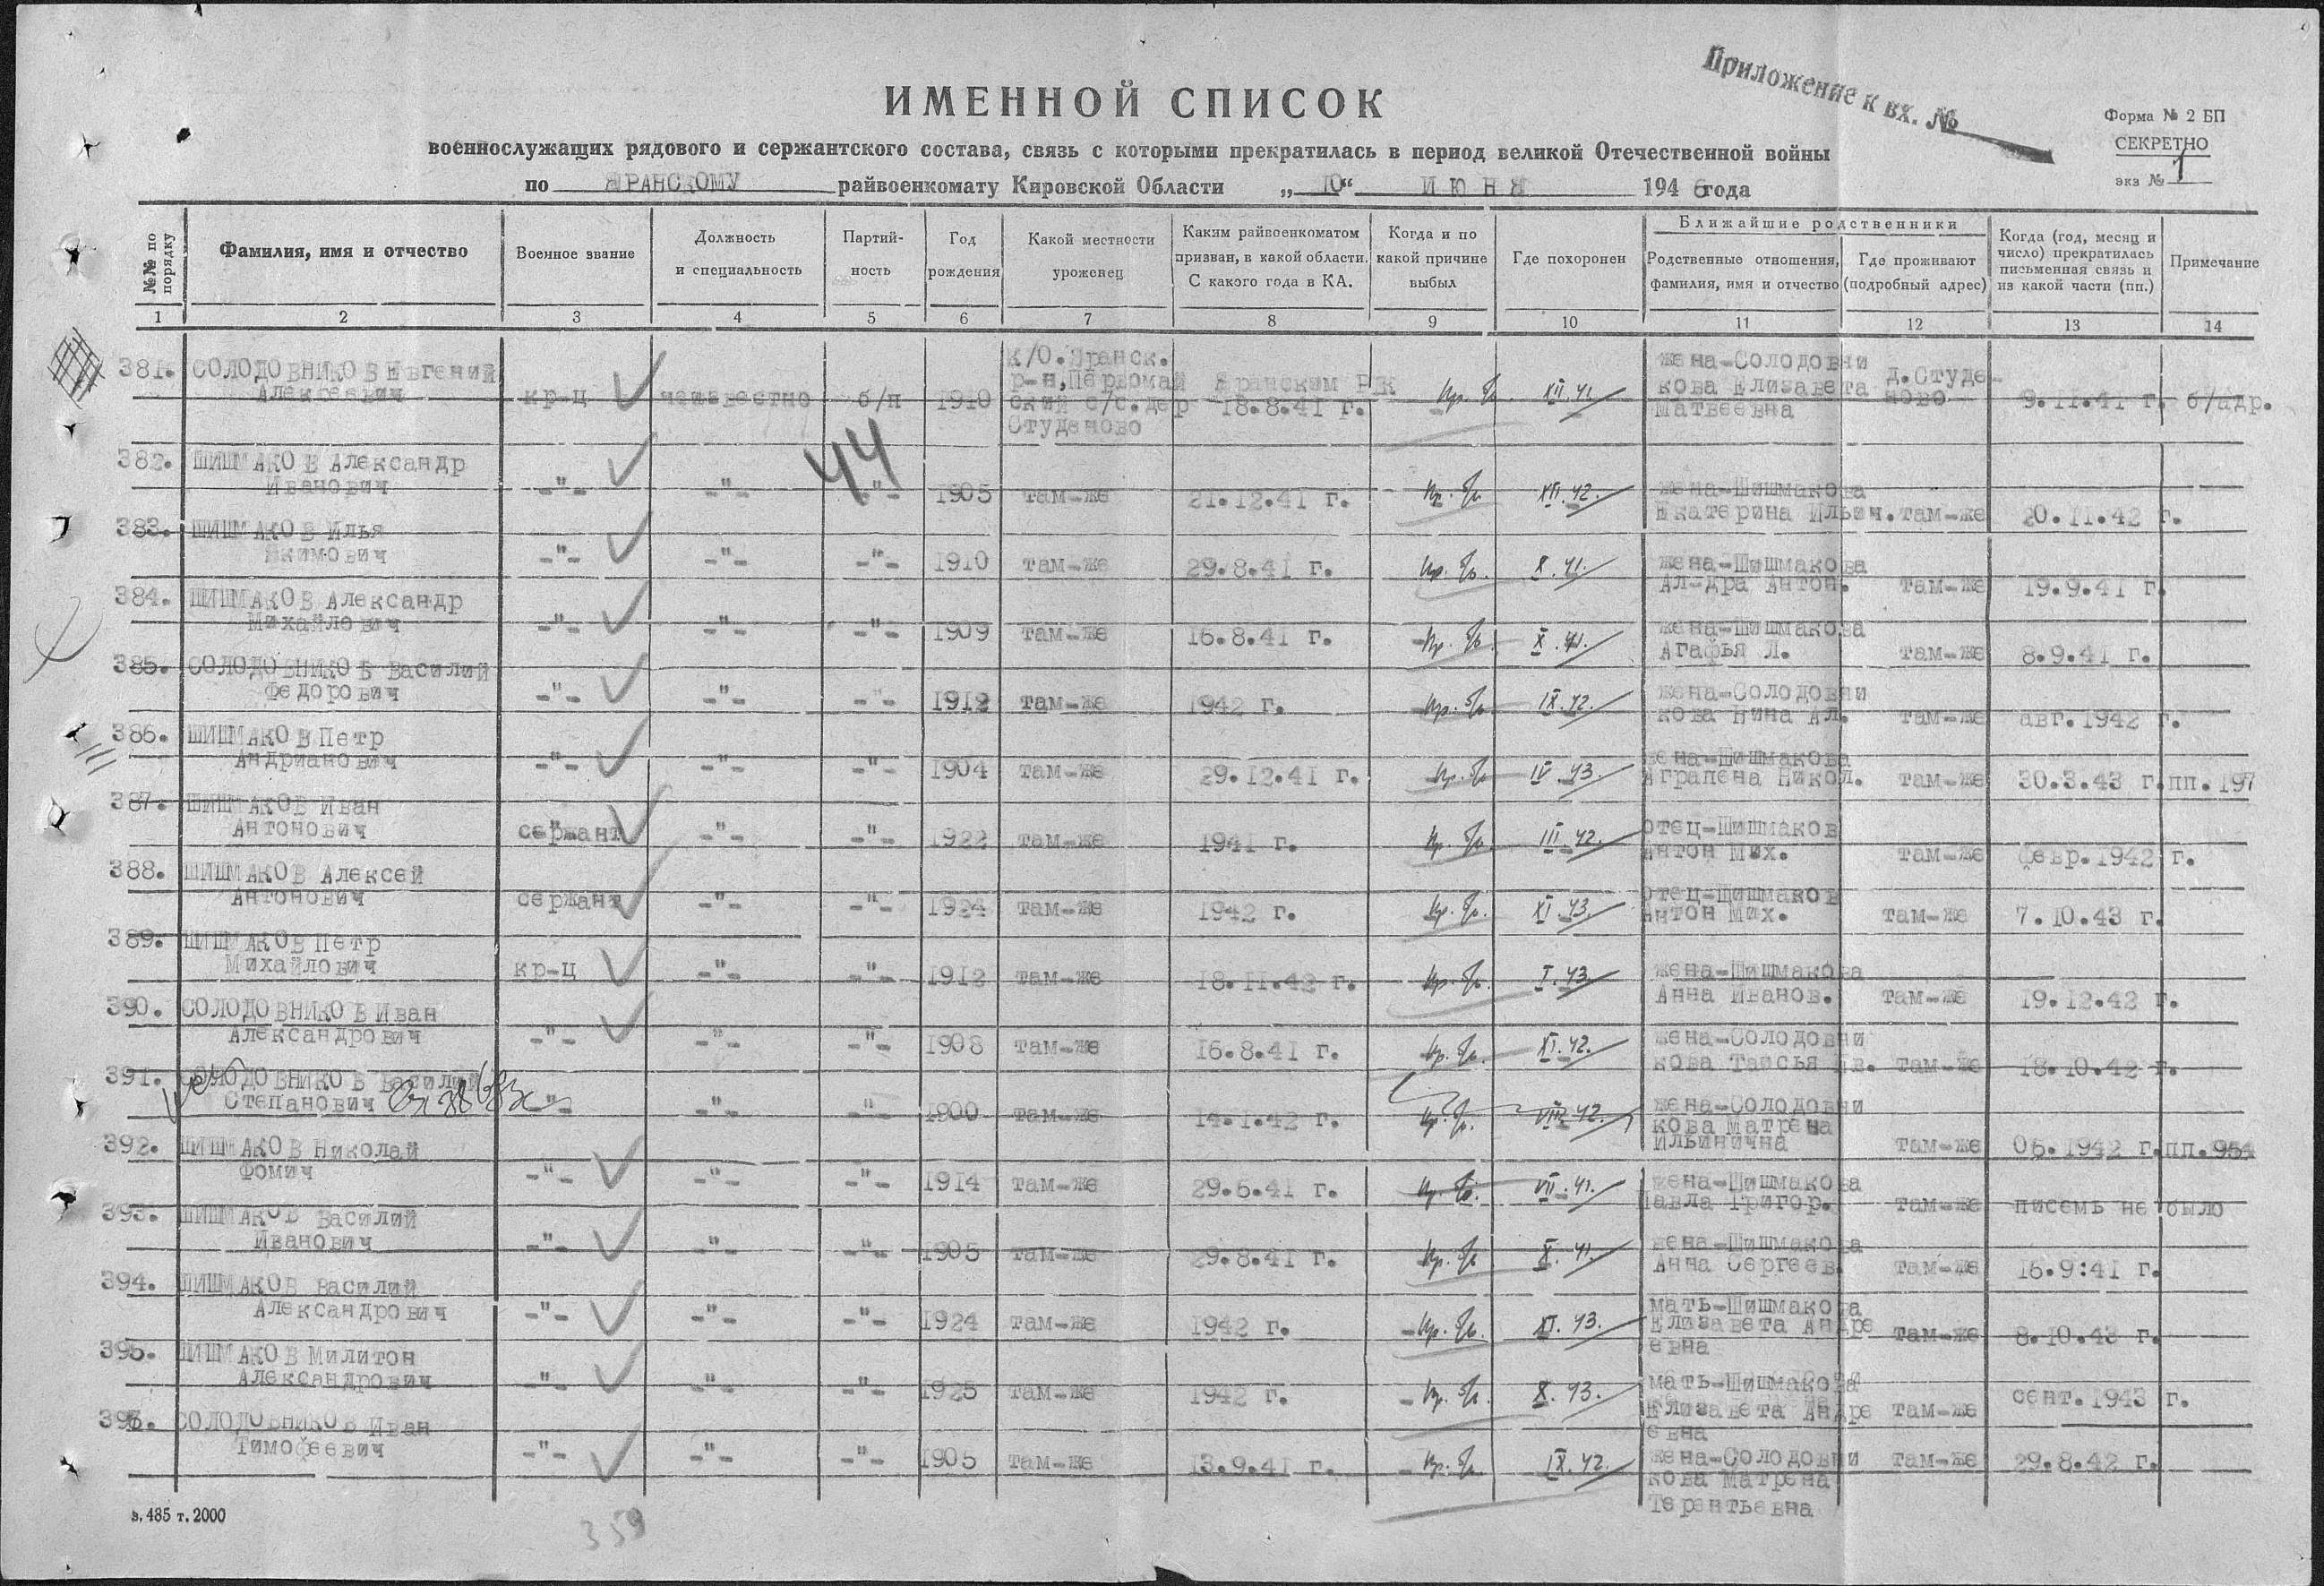 Приложение к вх. №
Форма № 2 БП
СЕКРЕТНО
экз № 1
ИМЕННОЙ СПИСОК
военнослужащих рядового и сержантского состава, связь с которыми прекратилась в период великой Отечественной войны
по ЯРАНСКОМУ райвоенкомату Кировской Области „10“ ИЮНЯ 1946 года
№№ по порядку
Фамилия, имя и отчество
Военное звание
Должность и специальность
Партийность
Год рождения
Какой местности уроженец
Каким райвоенкоматом призван, в какой области. С какого года в КА.
Когда и по какой причине выбыл
Где похоронен
Ближайшие родственники
Родственные отношения, фамилия, имя и отчество
Где проживают (подробный адрес)
Когда (год, месяц и число) прекратилась письменная связь и из какой части (пп.)
Примечание
1 2 3 4 5 6 7 8 9 10 11 12 13 14
381. СОЛОДОВНИКОВ Евгений Алексеевич кр-ц неизвестно б/п 1910 К/О. Яранск. р-н, Первомайский с/с. дер Студеново Яранским РВК 18.8.41 г. пр. б/в. XII.41. жена-Солодовникова Елизавета Матвеевна д. Студеново 9.11.41 г. б/адр.
44
382. ШИШМАКОВ Александр Иванович -"- -"- -"- 1905 там-же 21.12.41 г. пр. б/в XII.42. жена-Шишмакова Екатерина Ильин. там-же 20.11.42 г.
383. ШИШМАКОВ Илья Якимович -"- -"- -"- 1910 там-же 29.8.41 г. пр. б/в. X.41. жена-Шишмакова Ал-дра Антон. там-же 19.9.41 г.
384. ШИШМАКОВ Александр Михайлович -"- -"- -"- 1909 там-же 16.8.41 г. пр. б/в. X.41. жена-Шишмакова Агафья Л. там-же 8.9.41 г.
385. СОЛОДОВНИКОВ Василий Федорович -"- -"- -"- 1912 там-же 1942 г. пр. б/в IX.42. жена-Солодовникова Нина Ал. там-же авг.1942 г.
386. ШИШМАКОВ Петр Андрианович -"- -"- -"- 1904 там-же 29.12.41 г. пр. б/в IV.43. жена-Шишмакова Аграпена Никол. там-же 30.3.43 г. пп.197
387. ШИШМАКОВ Иван Антонович сержант -"- -"- 1922 там-же 1941 г. пр. б/в. III.42. отец-Шишмаков Антон Мих. там-же февр.1942 г.
388. ШИШМАКОВ Алексей Антонович сержант -"- -"- 1924 там-же 1942 г. пр. б/в. XI.43. отец-Шишмаков Антон Мих. там-же 7.10.43 г.
389. ШИШМАКОВ Петр Михайлович кр-ц -"- -"- 1912 там-же 18.11.42 г. пр. б/в. I.43. жена-Шишмакова Анна Иванов. там-же 19.12.42 г.
390. СОЛОДОВНИКОВ Иван Александрович -"- -"- -"- 1908 там-же 16.8.41 г. пр. б/в. XI.42. жена-Солодовникова Таисья Ив. там-же 18.10.42 г.
391. СОЛОДОВНИКОВ Василий Степанович -"- -"- -"- 1900 там-же 14.1.42 г. пр. б/в. VIII.42. жена-Солодовникова Матрена Ильинична там-же 06.1942 г. пп.954
392. ШИШМАКОВ Николай Фомич -"- -"- -"- 1914 там-же 29.6.41 г. пр. б/в. VII.41. жена-Шишмакова Павла Григор. там-же писемь не было
393. ШИШМАКОВ Василий Иванович -"- -"- -"- 1905 там-же 29.8.41 г. пр. б/в X.41. жена-Шишмакова Анна Сергеев. там-же 16.9:41 г.
394. ШИШМАКОВ Василий Александрович -"- -"- -"- 1924 там-же 1942 г. пр. б/в. XI.43. мать-Шишмакова Елизавета Андреевна там-же 8.10.43 г.
395. ШИШМАКОВ Милитон Александрович -"- -"- -"- 1925 там-же 1942 г. пр. б/в. X.43. мать-Шишмакова Елизавета Андреевна там-же сент.1943 г.
396. СОЛОДОВНИКОВ Иван Тимофеевич -"- -"- -"- 1905 там-же 13.9.41 г. пр. б/в IX.42. жена-Солодовникова Матрена Терентьевна там-же 29.8.42 г.
з. 485 т. 2000
359